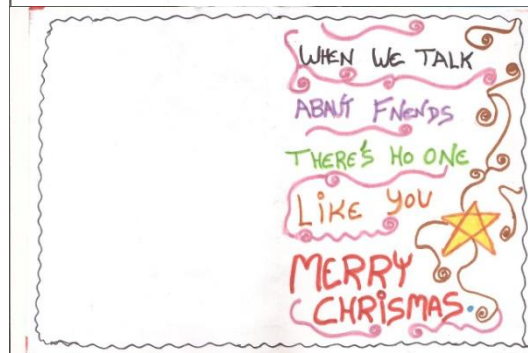 WHEN WE TALK
ABAUT FNENDS
THERE'S HO ONE
LiKE YOU
MERRY
CHRiSMAS.